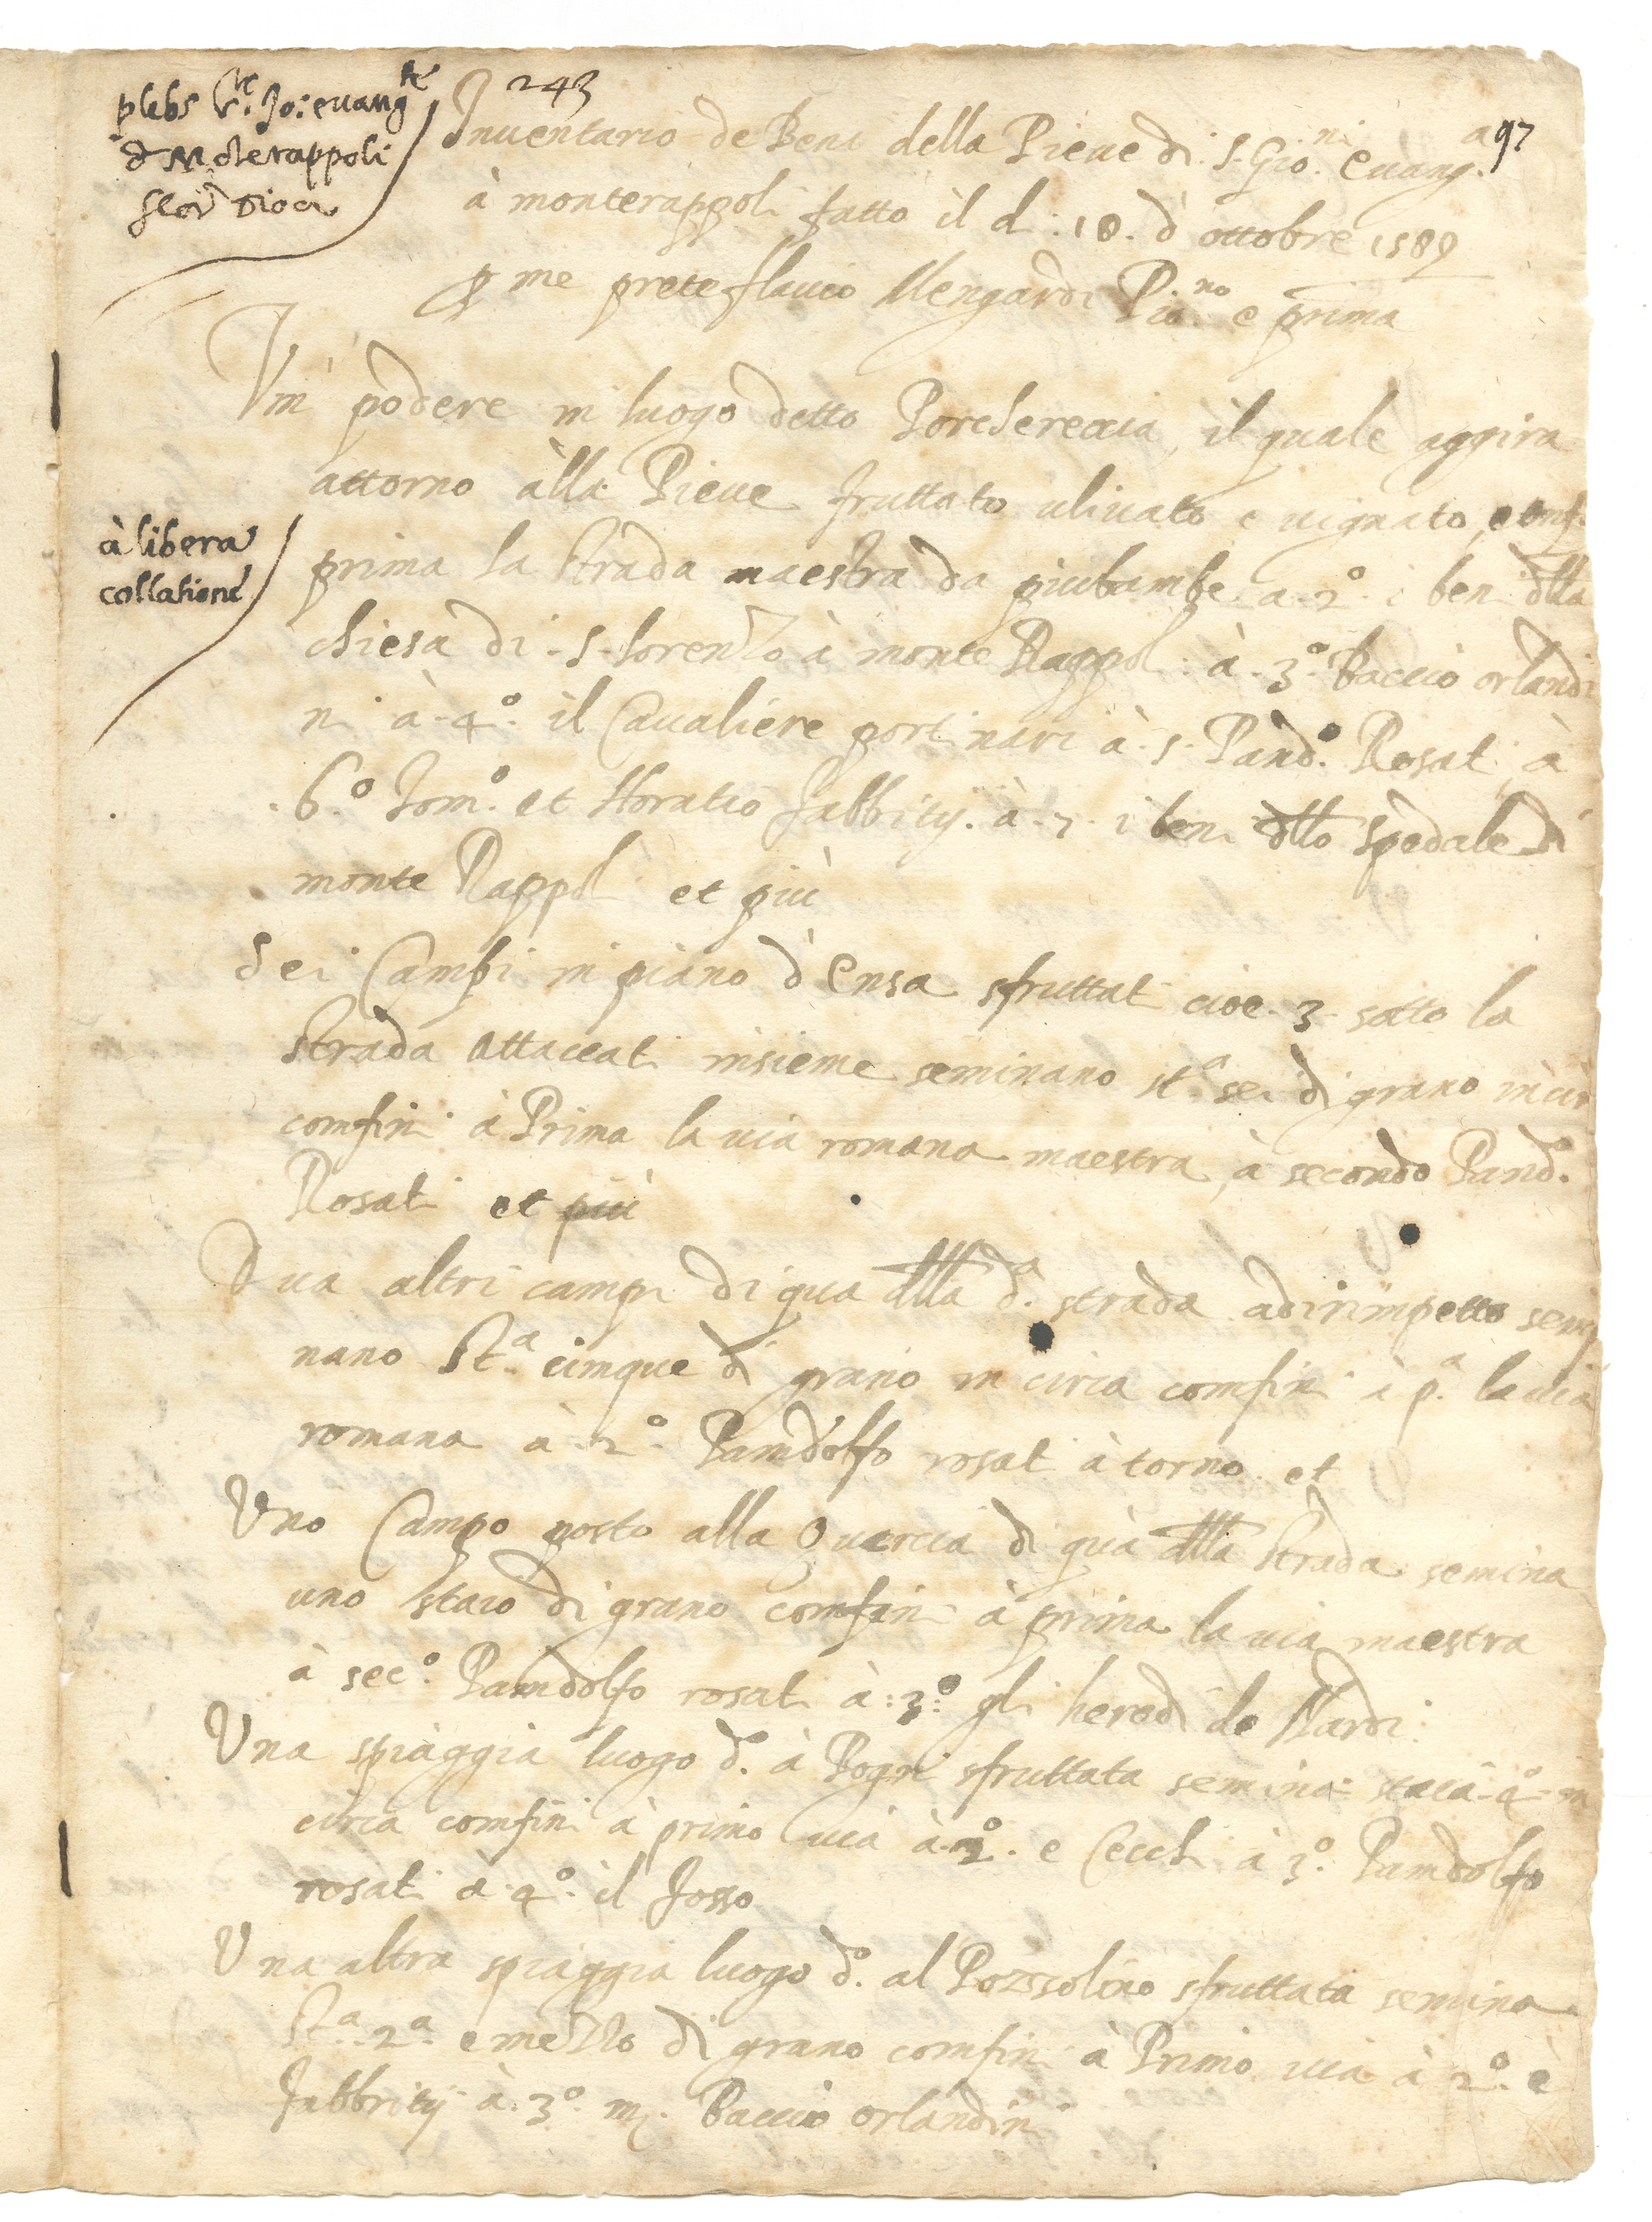 243
97
plebs S.ti Jo: evang.te
d Mōterappoli
flor dioc
Inventario de Beni della Pieve di S. Gio.ni Evang.a
à monterappoli fatto il d : 18. d'ottobre 1589
me prete flavio Mengardi Pio.no e prima
Un podere in luogo detto Porchereccia, il quale aggira
attorno àlla Pieve fruttato ulivato e vignato,
prima la strada maestra da a 2.o i beni dlla
chiesa di S. lorenzo à monte Rappoli à 3.o Baccio orlandi
ni à 4.o il Cavaliere portinari à 5. Pand.o Rosati à
6.o Tom.o et Horatio fabbritij. à 7. i beni dllo spedale di
monte Rappoli et più
à libera
collatione
Sei Campi in piano d'Ensa sfruttati cioe 3 sotto la
strada attaccati insieme seminano st.a sei di grano in cir
comfini à Prima la via romana maestra, à secondo Pand.o
Rosati et più
Dua altri campi di qua dlla d.a strada adirimpetto semi
nano St.a cimque di grano in circa comfini à p.a la via
romana à 2.o Pamdolfo rosati à torno et
Uno Campo posto alla Quercia di quà dlla strada semina
uno staio di grano comfini à prima la via maestra
à sec.o Pamdolfo rosati à 3.o gli heredi de Nardi
Una spiaggia luogo d.o à Pogni sfruttata semina staia 4.o in
circa comfini à primo via à 2.o e Cecchi à 3.o Pamdolfo
rosati à 4.o il fosso
Una altra spiaggia luogo d.o al Pozzolino sfruttata semina
St.a 2.a e mezzo di grano comfini à Primo via à 2.o è
fabbritij à 3.o m. Baccio orlandini